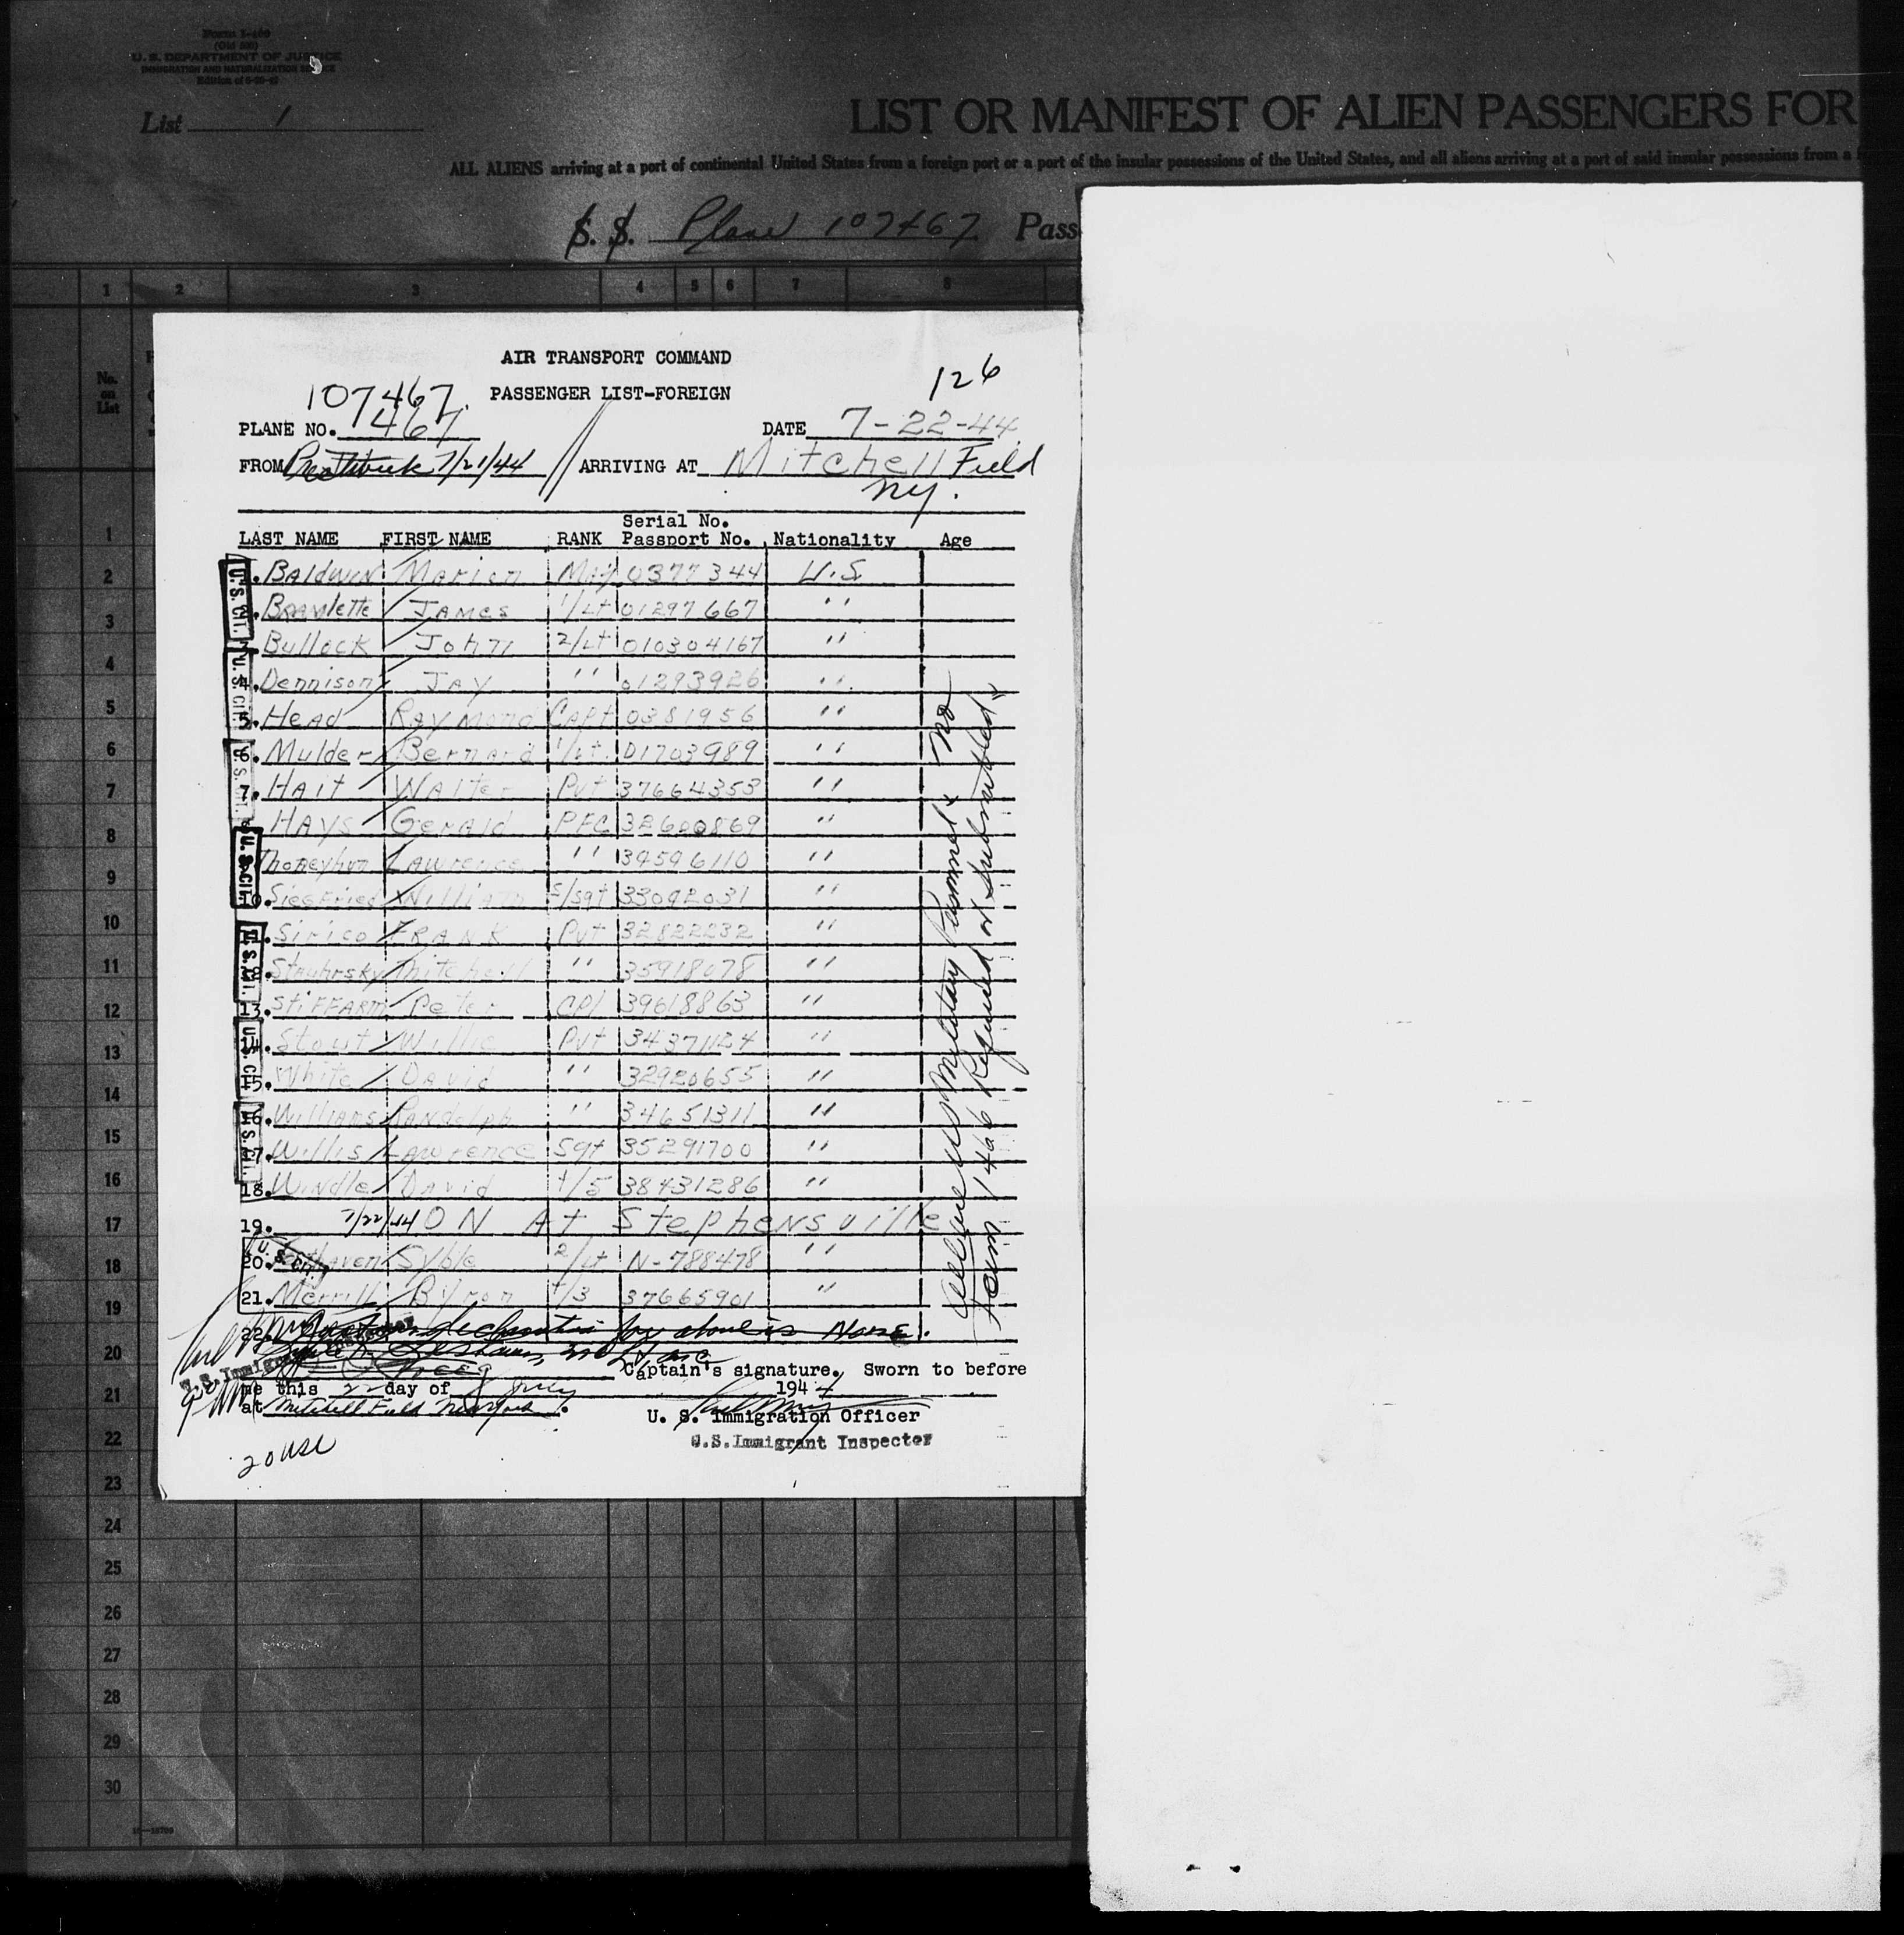 Form I-460
(Old 500)
U. S. DEPARTMENT OF JUSTICE
IMMIGRATION AND NATURALIZATION SERVICE
List 1
LIST OR MANIFEST OF ALIEN PASSENGERS FOR
ALL ALIENS arriving at a port of continental United States from a foreign port or a port of the insular possessions of the United States, and all aliens arriving at a port of said insular possessions from a
S. S. Plane 107467 Pass
1 2 3 4 5 6 7 8
No. on List
AIR TRANSPORT COMMAND
126
107467 PASSENGER LIST-FOREIGN
PLANE NO. 7467 DATE 7-22-44
FROM 7/21/44 ARRIVING AT Mitchell Field
NY.
Serial No.
LAST NAME FIRST NAME RANK Passport No. Nationality Age
1. BALDWIN Marion Maj 0377344 U.S.
Bramlette JAMES 1/Lt 01297667 ''
Bullock John 2/Lt 010304167 ''
4. Dennison JAY '' 01293926 ''
5. HEAD RAYMOND CAPT 0381956 ''
6. Mulder Bernard 1/Lt. 01703989 ''
7. HAIT WALTER Pvt 37664353 ''
HAYS Gerald PFC 32600869 ''
Honeyhun LAWrence '' 39596110 ''
10. SiegFried William S/Sgt 33092031 ''
11. Sirico FRANK Pvt 32822232 ''
Struhrsky Mitchell '' 35918078 ''
13. STIFFARM Peter Cpl 39618863 ''
14. Stout Willie Pvt 34371124 ''
15. White DAVID '' 32920655 ''
16. WILLIAMS RANdolph '' 34651311 ''
17. Willis LAWRENCE Sgt 35291700 ''
18. WINDLE DAVID T/5 38431286 ''
19. 7/22/44 ON At Stephensville
20. Syble 2/Lt N-788478 ''
21. Merrill Byron T/3 37665901 ''
22. declaration for above is None.
Captain's signature. Sworn to before
me this 22 day of July 1944
at Mitchell Field New York.
U. S. Immigration Officer
U.S. Immigrant Inspector
20 USC
U.S. CIT.
U.S. CIT.
U.S. CIT.
U.S. CIT.
U.S. CIT.
U.S. CIT.
U.S. CIT.
U.S. CIT.
U.S. Immigrant Inspector
All are US Military Personnel & No
Form 1466 Required or Submitted
1
2
3
4
5
6
7
8
9
10
11
12
13
14
15
16
17
18
19
20
21
22
23
24
25
26
27
28
29
30